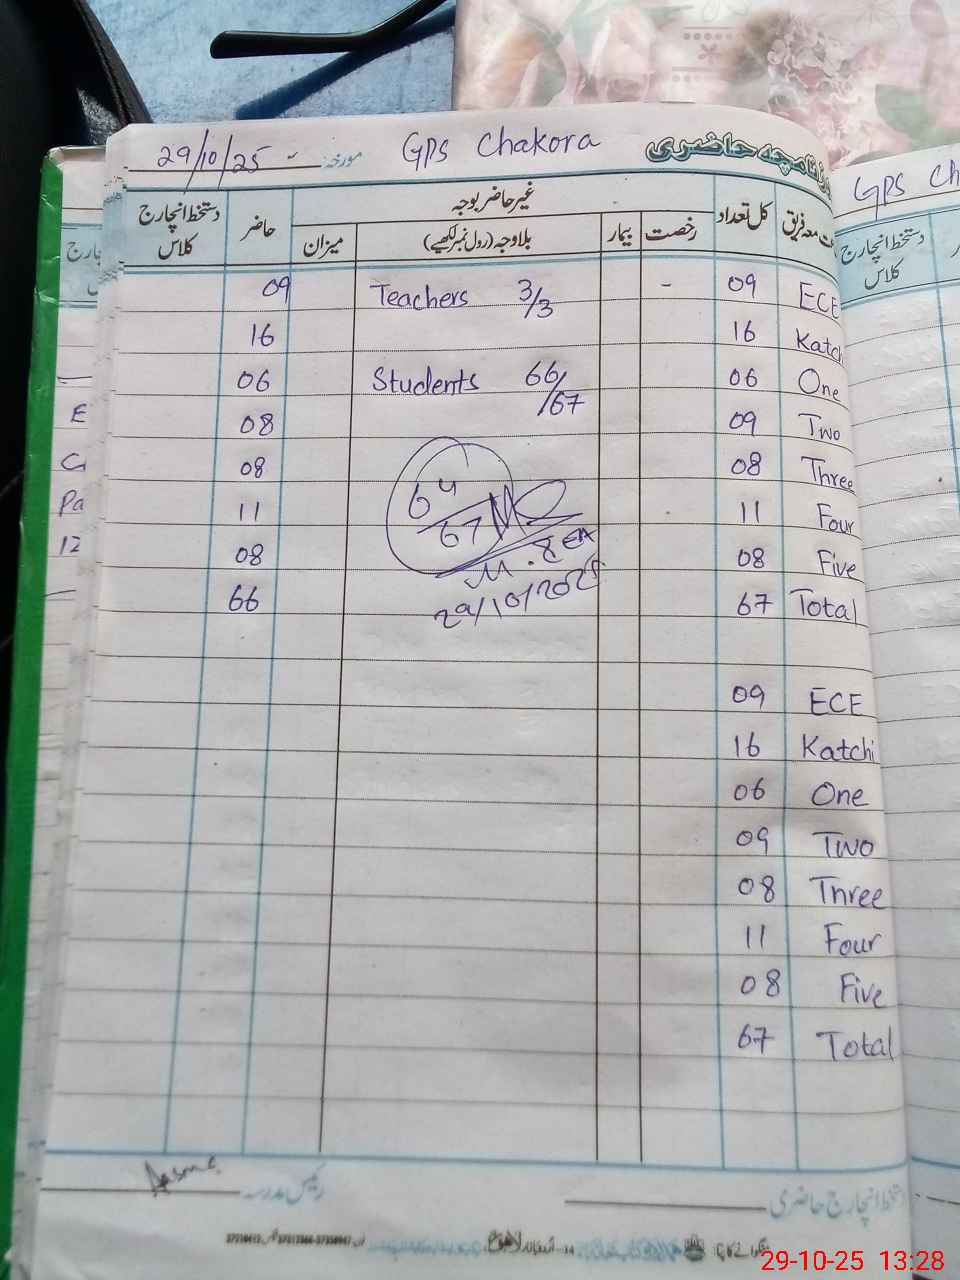 29/10/25 مورخہ GPS Chakora روزنامچہ حاضری
جماعت معہ فریق کل تعداد غیر حاضر بوجہ حاضر دستخط انچارج کلاس
رخصت بیمار بلاوجہ (رول نمبر لکھیے) میزان
ECE 09 - Teachers 3/3 09
Katchi 16 16
One 06 Students 66/67 06
Two 09 08
Three 08 08
Four 11 11
Five 08 08
Total 67 66
64/67
29/10/2025
ECE 09
Katchi 16
One 06
Two 09
Three 08
Four 11
Five 08
Total 67
دستخط انچارج حاضری
رئیس مدرسہ
GPS Ch
دستخط انچارج
کلاس
E
Pa
12
29-10-25 13:28